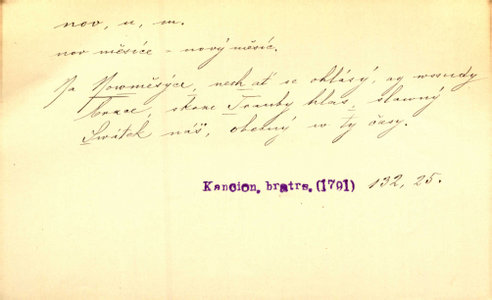 nov, u, m.
nov měsíce - nový měsíc.
Na Nowoměsýce, nech ať se ohlásý, ag wssudy
brace, skrze Trauby hlas, slawný
Swátek náš, obecný w ty časy.
Kancion. bratrs. (1791) 132, 25.